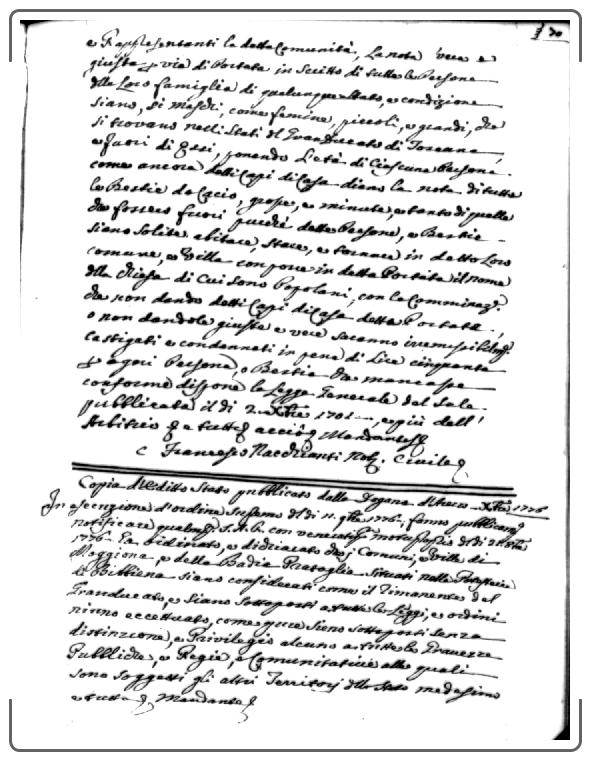 e Rappresentanti la detta Comunità, La nota vera e
giusta per via di Portata in scritto di tutte le Persone
della Loro famiglia di qualunque stato, e condizione
siano, sì maschi, come femine, piccoli, e grandi, che
si trovano nelli Stati del Granducato di Toscana,
e fuori di Essi, ponendo L'età di Ciascuna Persona.
come ancora detti Capi di Casa diano la nota di tutte
le Bestie da Cacio, grosse, e minute, e tanto di quelle
che fossero fuori purchè dette Persone, e Bestie
siano solite abitare, stare, e tornare in detto Loro
comune, e Villa con porre in detta Portata il nome
della Chiesa di Cui sono Popolani, con la Comminaz.e
che non dando detti Capi di Casa detta Portata,
o non dandola giusta e vera saranno irremissibilm.e
castigati e condannati in pena di Lire cinquanta
per ogni Persona, o Bestia che mancasse
conforme dispone la Legge Generale del Sale
pubblicata il dì 2 Xbre 1701, e più dell'
Arbitrio e tutto acciò Mandante
Francesco Nacchianti Not. Civile
Copia d'Editto Stato pubblicato dalla Dogana d'Arezzo Xbre 1776
In esecuzione d'ordine Supremo del dì 11. 9bre 1776, fanno pubblicam.e
notificare qualm.e S. A. R. con veneratissimo motuproprio del dì
1776 ha ordinato, e dichiarato che i Comuni, e Ville di
Moggiona, e della Badia Prataglia situati nella Potesteria
di Bibbiena siano considerati come il rimanente del
Granducato, e siano sottoposti a tutte le Leggi, e ordini
niuno eccettuato, come pure sieno sottoposti senza
distinzione, e Privilegio alcuno a tutte le Gravezze
Pubbliche, e Regie, e Comunitative alle quali
sono soggetti gli altri Territorj dello stato medesimo
e tutto Mandante